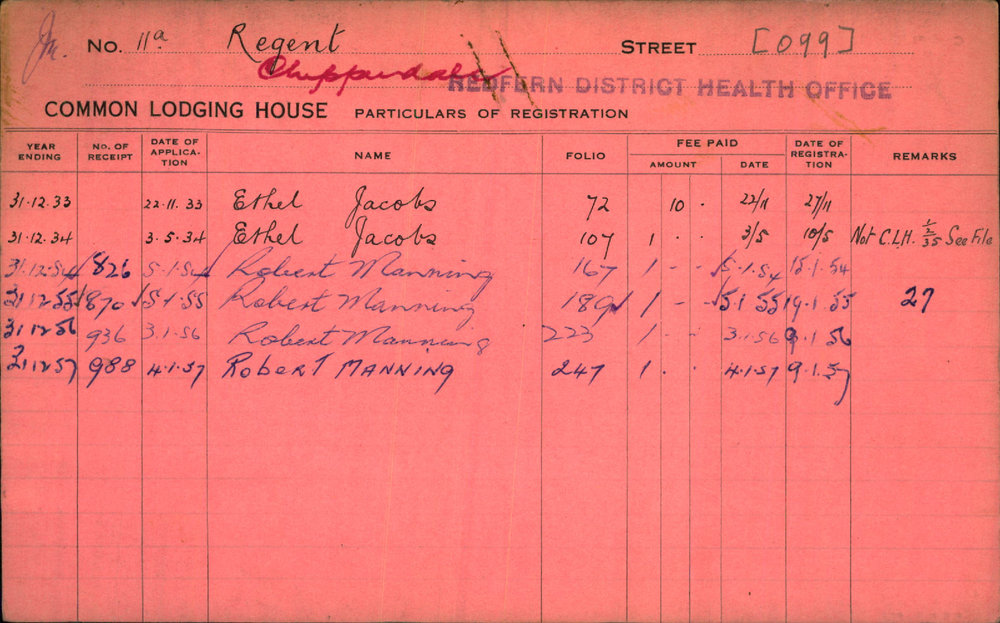 Jn. No. 11a Regent STREET [099]
Chippendale
REDFERN DISTRICT HEALTH OFFICE
COMMON LODGING HOUSE PARTICULARS OF REGISTRATION
YEAR ENDING No. OF RECEIPT DATE OF APPLICA-TION NAME FOLIO FEE PAID AMOUNT DATE DATE OF REGISTRA-TION REMARKS
31.12.33 22.11.33 Ethel Jacobs 72 10 . 22/11 27/11
31.12.34 3.5.34 Ethel Jacobs 107 1 . 3/5 10/5 Not C.L.H. 1/2/35 See File
31.12.54 826 5.1.54 Robert Manning 167 1 - - 5.1.54 15.1.54
31.12.55 870 5.1.55 Robert Manning 189 1 - - 5.1.55 19.1.55 27
31.12.56 936 3.1.56 Robert Manning 223 1 - - 3.1.56 9.1.56
31.12.57 988 4.1.57 Robert MANNING 247 1 . . 4.1.57 9.1.57